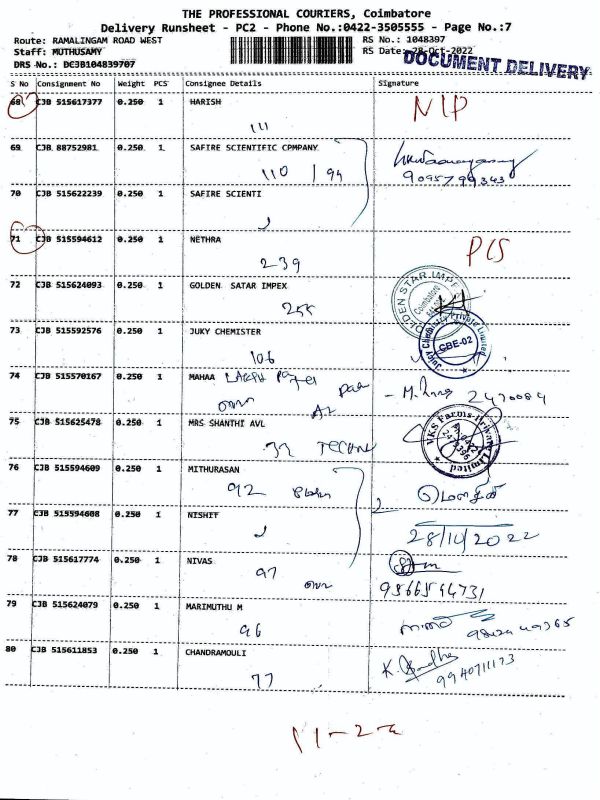 THE PROFESSIONAL COURIERS, Coimbatore
Delivery Runsheet - PC2 - Phone No.:0422-3505555 - Page No.:7
Route: RAMALINGAM ROAD WEST RS No.: 1048397
Staff: MUTHUSAMY RS Date: 28-Oct-2022
DRS No.: DC3B104839707
DOCUMENT DELIVERY
S No Consignment No Weight PCS Consignee Details Signature
68 CJB 515617377 0.250 1 HARISH NIP
111
69 CJB 88752981 0.250 1 SAFIRE SCIENTIFIC CPMPANY
110 / 94 9095799343
70 CJB 515622239 0.250 1 SAFIRE SCIENTI
71 CJB 515594612 0.250 1 NETHRA
239
72 CJB 515624093 0.250 1 GOLDEN SATAR IMPEX
Coimbatore
73 CJB 515592576 0.250 1 JUKY CHEMISTER
106 CBE-02
74 CJB 515570167 0.250 1 MAHAA
75 CJB 515625478 0.250 1 MRS SHANTHI AVL
VKS Farms Private Limited
76 CJB 515594609 0.250 1 MITHURASAN
92
77 CJB 515594608 0.250 1 NISHIT
28/10/2022
78 CJB 515617774 0.250 1 NIVAS
97 9566594731
79 CJB 515624079 0.250 1 MARIMUTHU M
96
80 CJB 515611853 0.250 1 CHANDRAMOULI
77 9940711173